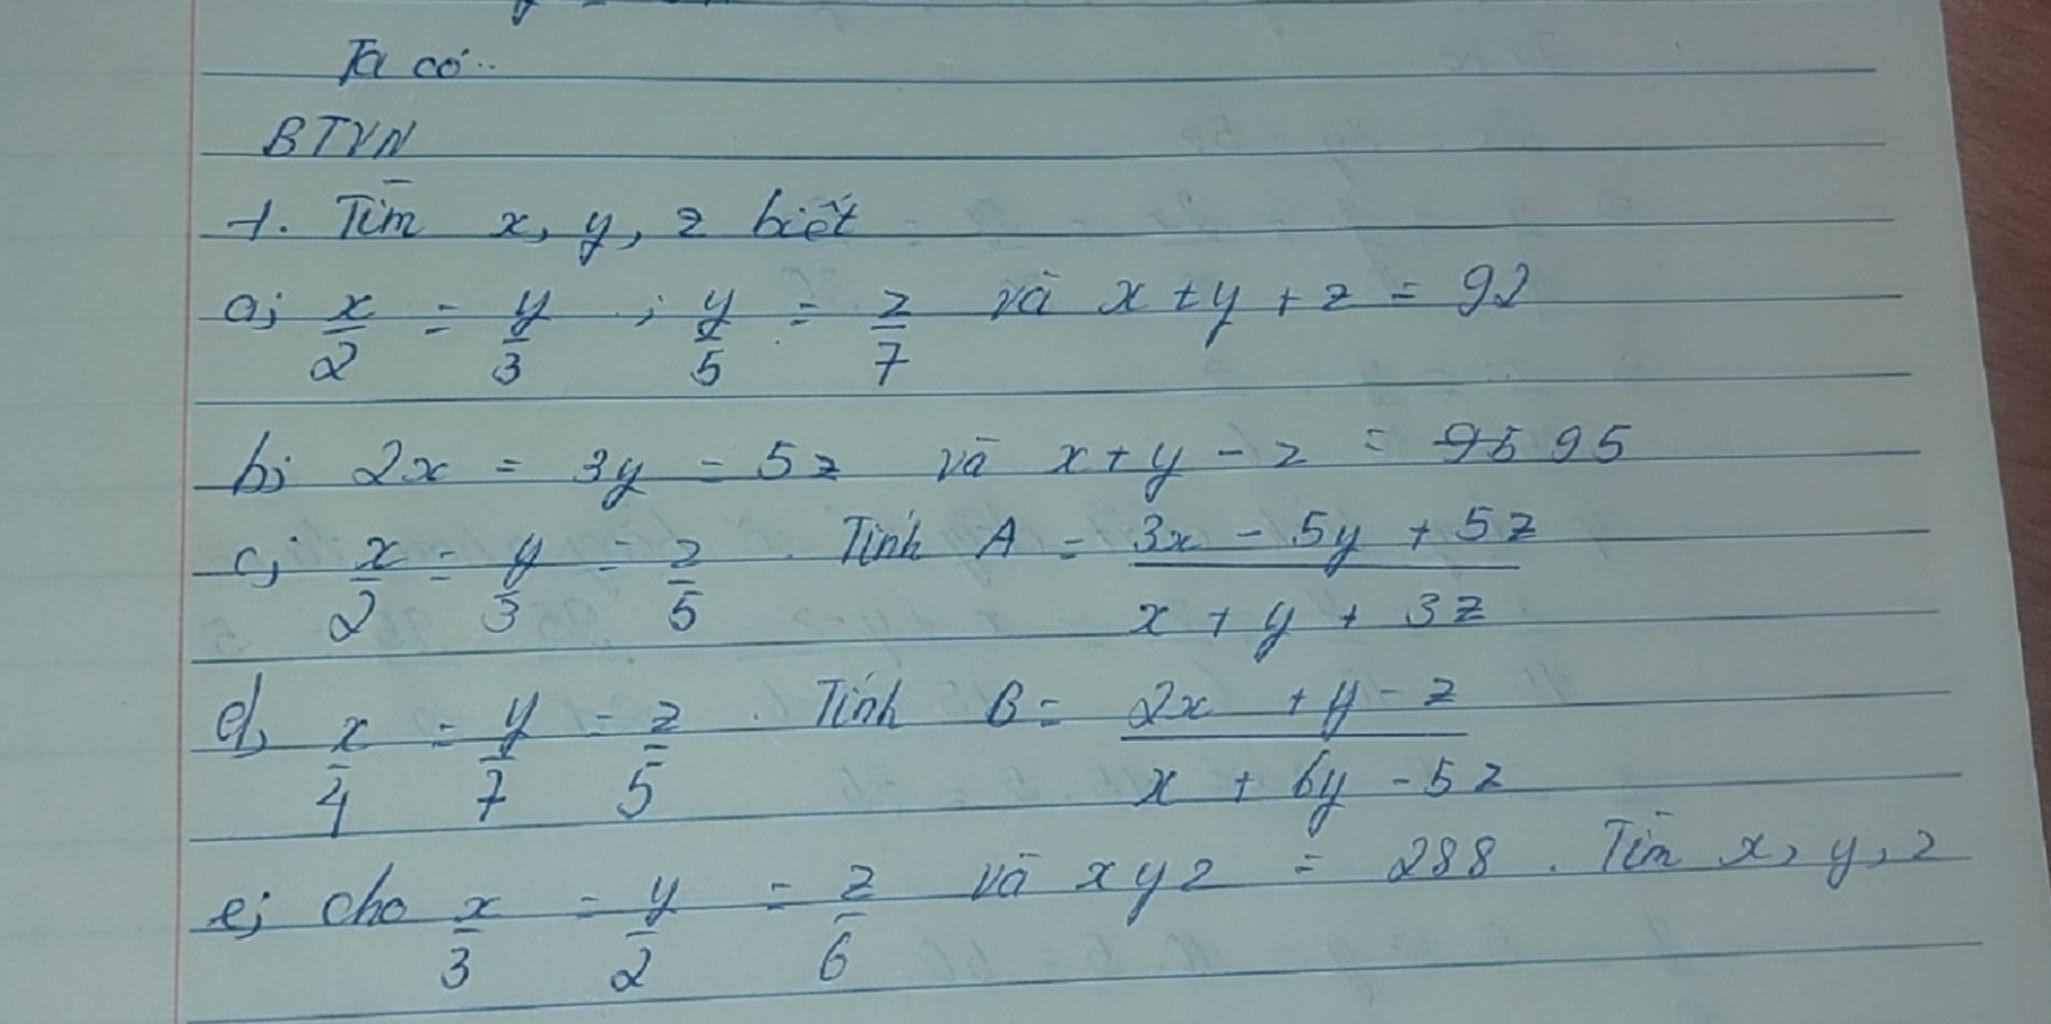 Ta có..
BTVN
1. Tìm x, y, z biết
a; x/2 = y/3 ; y/5 = z/7 và x + y + z = 92
b; 2x = 3y = 5z và x + y - z = 95 95
c; x/2 = y/3 = z/5 . Tính A = (3x - 5y + 5z)/(x + y + 3z)
d, x/4 = y/7 = z/5 . Tính B = (2x + y - z)/(x + 6y - 5z)
e; cho x/3 = y/2 = z/6 và xyz = 288 . Tìm x, y, z